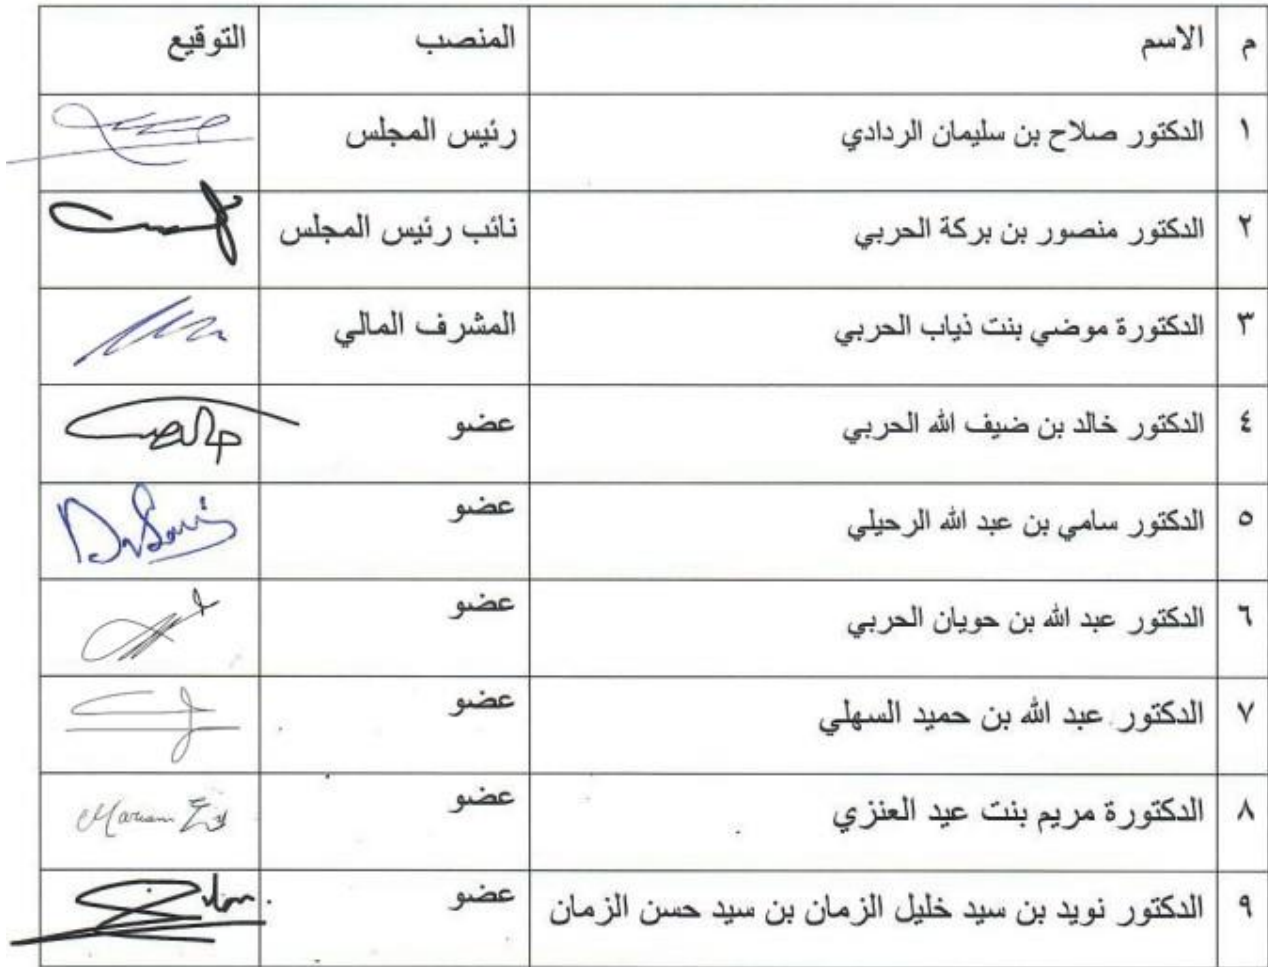 م الاسم المنصب التوقيع
١ الدكتور صلاح بن سليمان الردادي رئيس المجلس
٢ الدكتور منصور بن بركة الحربي نائب رئيس المجلس
٣ الدكتورة موضي بنت ذياب الحربي المشرف المالي
٤ الدكتور خالد بن ضيف الله الحربي عضو
٥ الدكتور سامي بن عبد الله الرحيلي عضو
٦ الدكتور عبد الله بن حويان الحربي عضو
٧ الدكتور عبد الله بن حميد السهلي عضو
٨ الدكتورة مريم بنت عيد العنزي عضو Mariam
٩ الدكتور نويد بن سيد خليل الزمان بن سيد حسن الزمان عضو